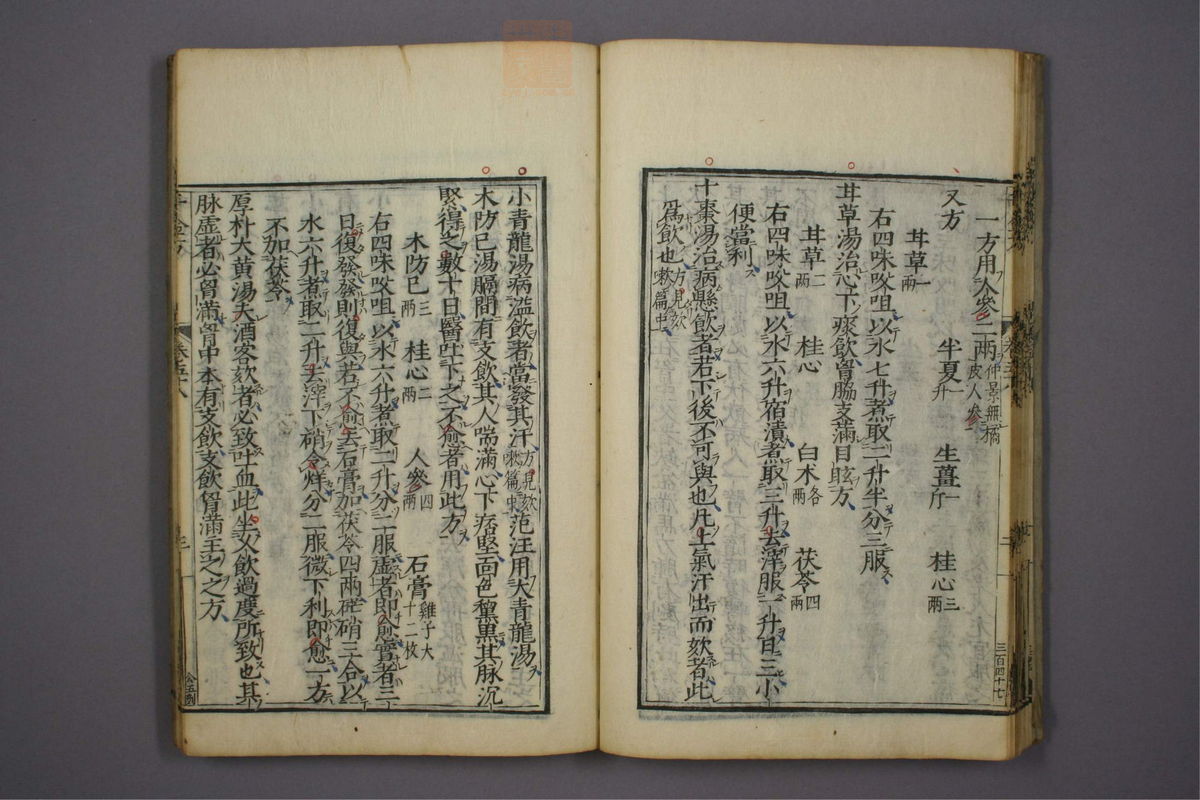 一方用人參二兩仲景無橘皮人參
又方　半夏一升　生薑一斤　桂心三兩
甘草一兩
右四味㕮咀以水七升煮取二升半分三服
甘草湯治心下痰飲胷脇支滿目眩方
甘草二兩　桂心　白术各兩　茯苓四兩
右四味㕮咀以水六升宿漬煮取三升去滓服一升日三小
便當利
十棗湯治病懸飲者若下後不可與也凡上氣汗出而欬者此
爲飲也方見欬嗽篇中
三百四十七
小青龍湯病溢飲者當發其汗方見欬嗽篇中范汪用大青龍湯
木防己湯膈間有支飲其人喘滿心下痞堅面色黧黑其脉沉
緊得之數十日醫吐下之不愈者用此方
木防己三兩　桂心二兩　人參四兩　石膏雞子大十二枚
右四味㕮咀以水六升煮取二升分二服虛者即愈實者三
日復發發則復與若不愈去石膏加茯苓四兩硝三合以
水六升煮取二升去滓下硝令烊分二服微下利即愈一方
不加茯苓
厚朴大黃湯夫酒客欬者必致吐血此坐久飲過度所致也其
脉虛者必冒滿胷中本有支飲支飲胷滿主之之方